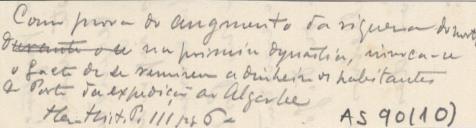 Como prova do augmento da riquesa do norte
durante o se na primeira dynastia, invoca-se
o facto de se remirem a dinheiro os habitantes
do Porto da expedição ao Algarve
Hist. P. III pg 6
AS 90(10)